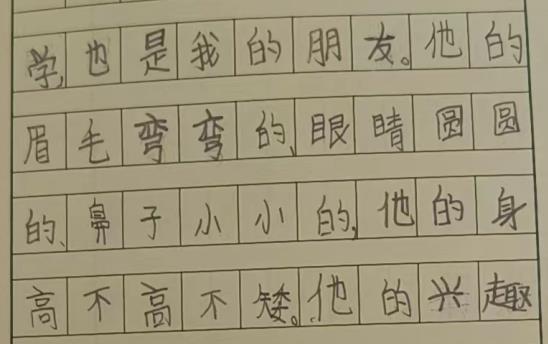 学,也是我的朋友。他的
眉毛弯弯的、眼睛圆圆
的、鼻子小小的,他的身
高不高不矮。他的兴趣